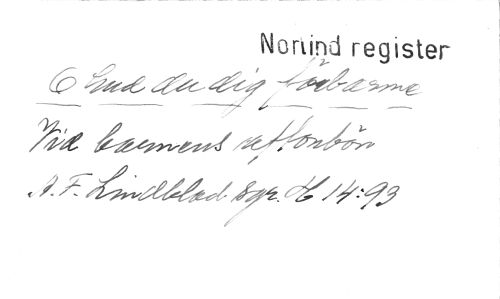 Norlind register
O Gud du dig förbarme
Vid barnens aftonbön
A. F. Lindblad sgr. H 14:93